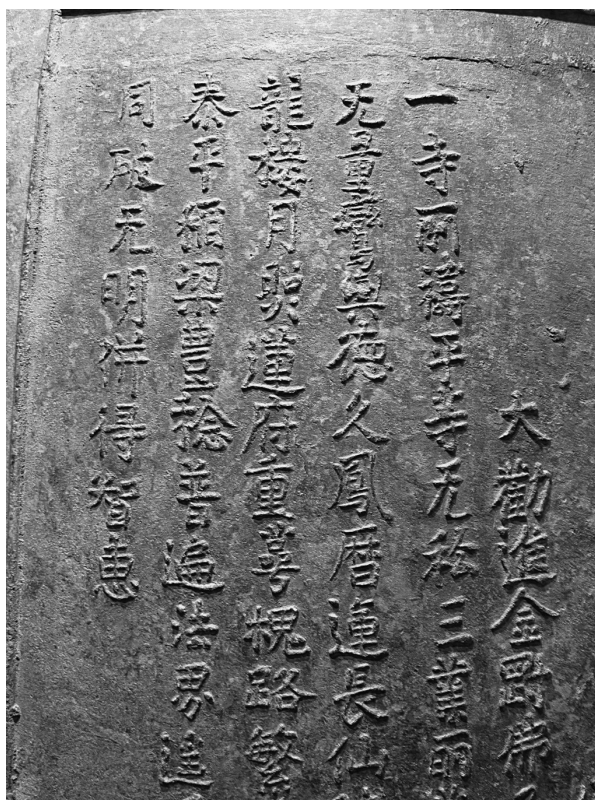 大勸進金剛佛
一寺所禱平等无私三業所
无量鸞輿徳久鳳暦運長仙
龍樓月明蓮府重萼槐路繁
泰平稻梁豊稔普遍法界遥
同破无明併得智恵